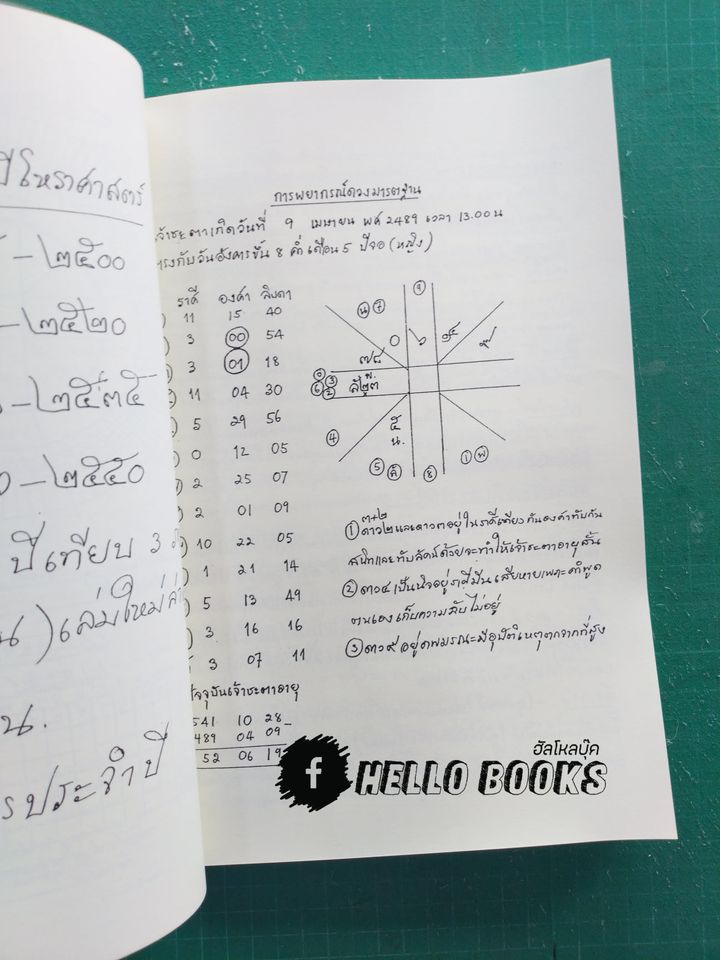 ปีโหราศาสตร์
– ๒๕๐๐
– ๒๕๒๐
– ๒๕๓๕
– ๒๕๕๐
ปีเทียบ 3
) เล่มใหม่
น.
รประจำปี
การพยากรณ์ดวงมารตฐาน
จ้าชะตาเกิดวันที่ 9 เมษายน พศ 2489 เวลา 13.00 น
ตรงกับวันอังคารขึ้น 8 ค่ำ เดือน 5 ปีจอ (หญิง)
ราศี องศา ลิบดา
11 15 40
3 00 54
3 01 18
11 04 30
5 29 56
0 12 05
2 25 07
2 01 09
10 22 05
1 21 14
5 13 49
3 16 16
3 07 11
ัจจุบันเจ้าชะตาอายุ
541 10 28
489 04 09
52 06 19
น ๗
๗๘
๐
๐ ๓
๖ ๒
๔
๕ ลั
๕
น.
๘
๑ พ
๓+๒
① ดาว๒และดาว๓อยู่ในราศีเดียวกันองศาทับกัน
สนิทและทับลัคน์ด้วยจะทำให้เจ้าชะตาอายุสั้น
② ดาว๔เป็นนิจอยู่ราศีมีนเสียหายเพราะคำพูด
ตนเองเก็บความลับไม่อยู่
③ ดาว๙อยู่ภพมรณะมีอุบัติเหตุตกจากที่สูง
ฮัลโหลบุ๊ค
f HELLO BOOKS